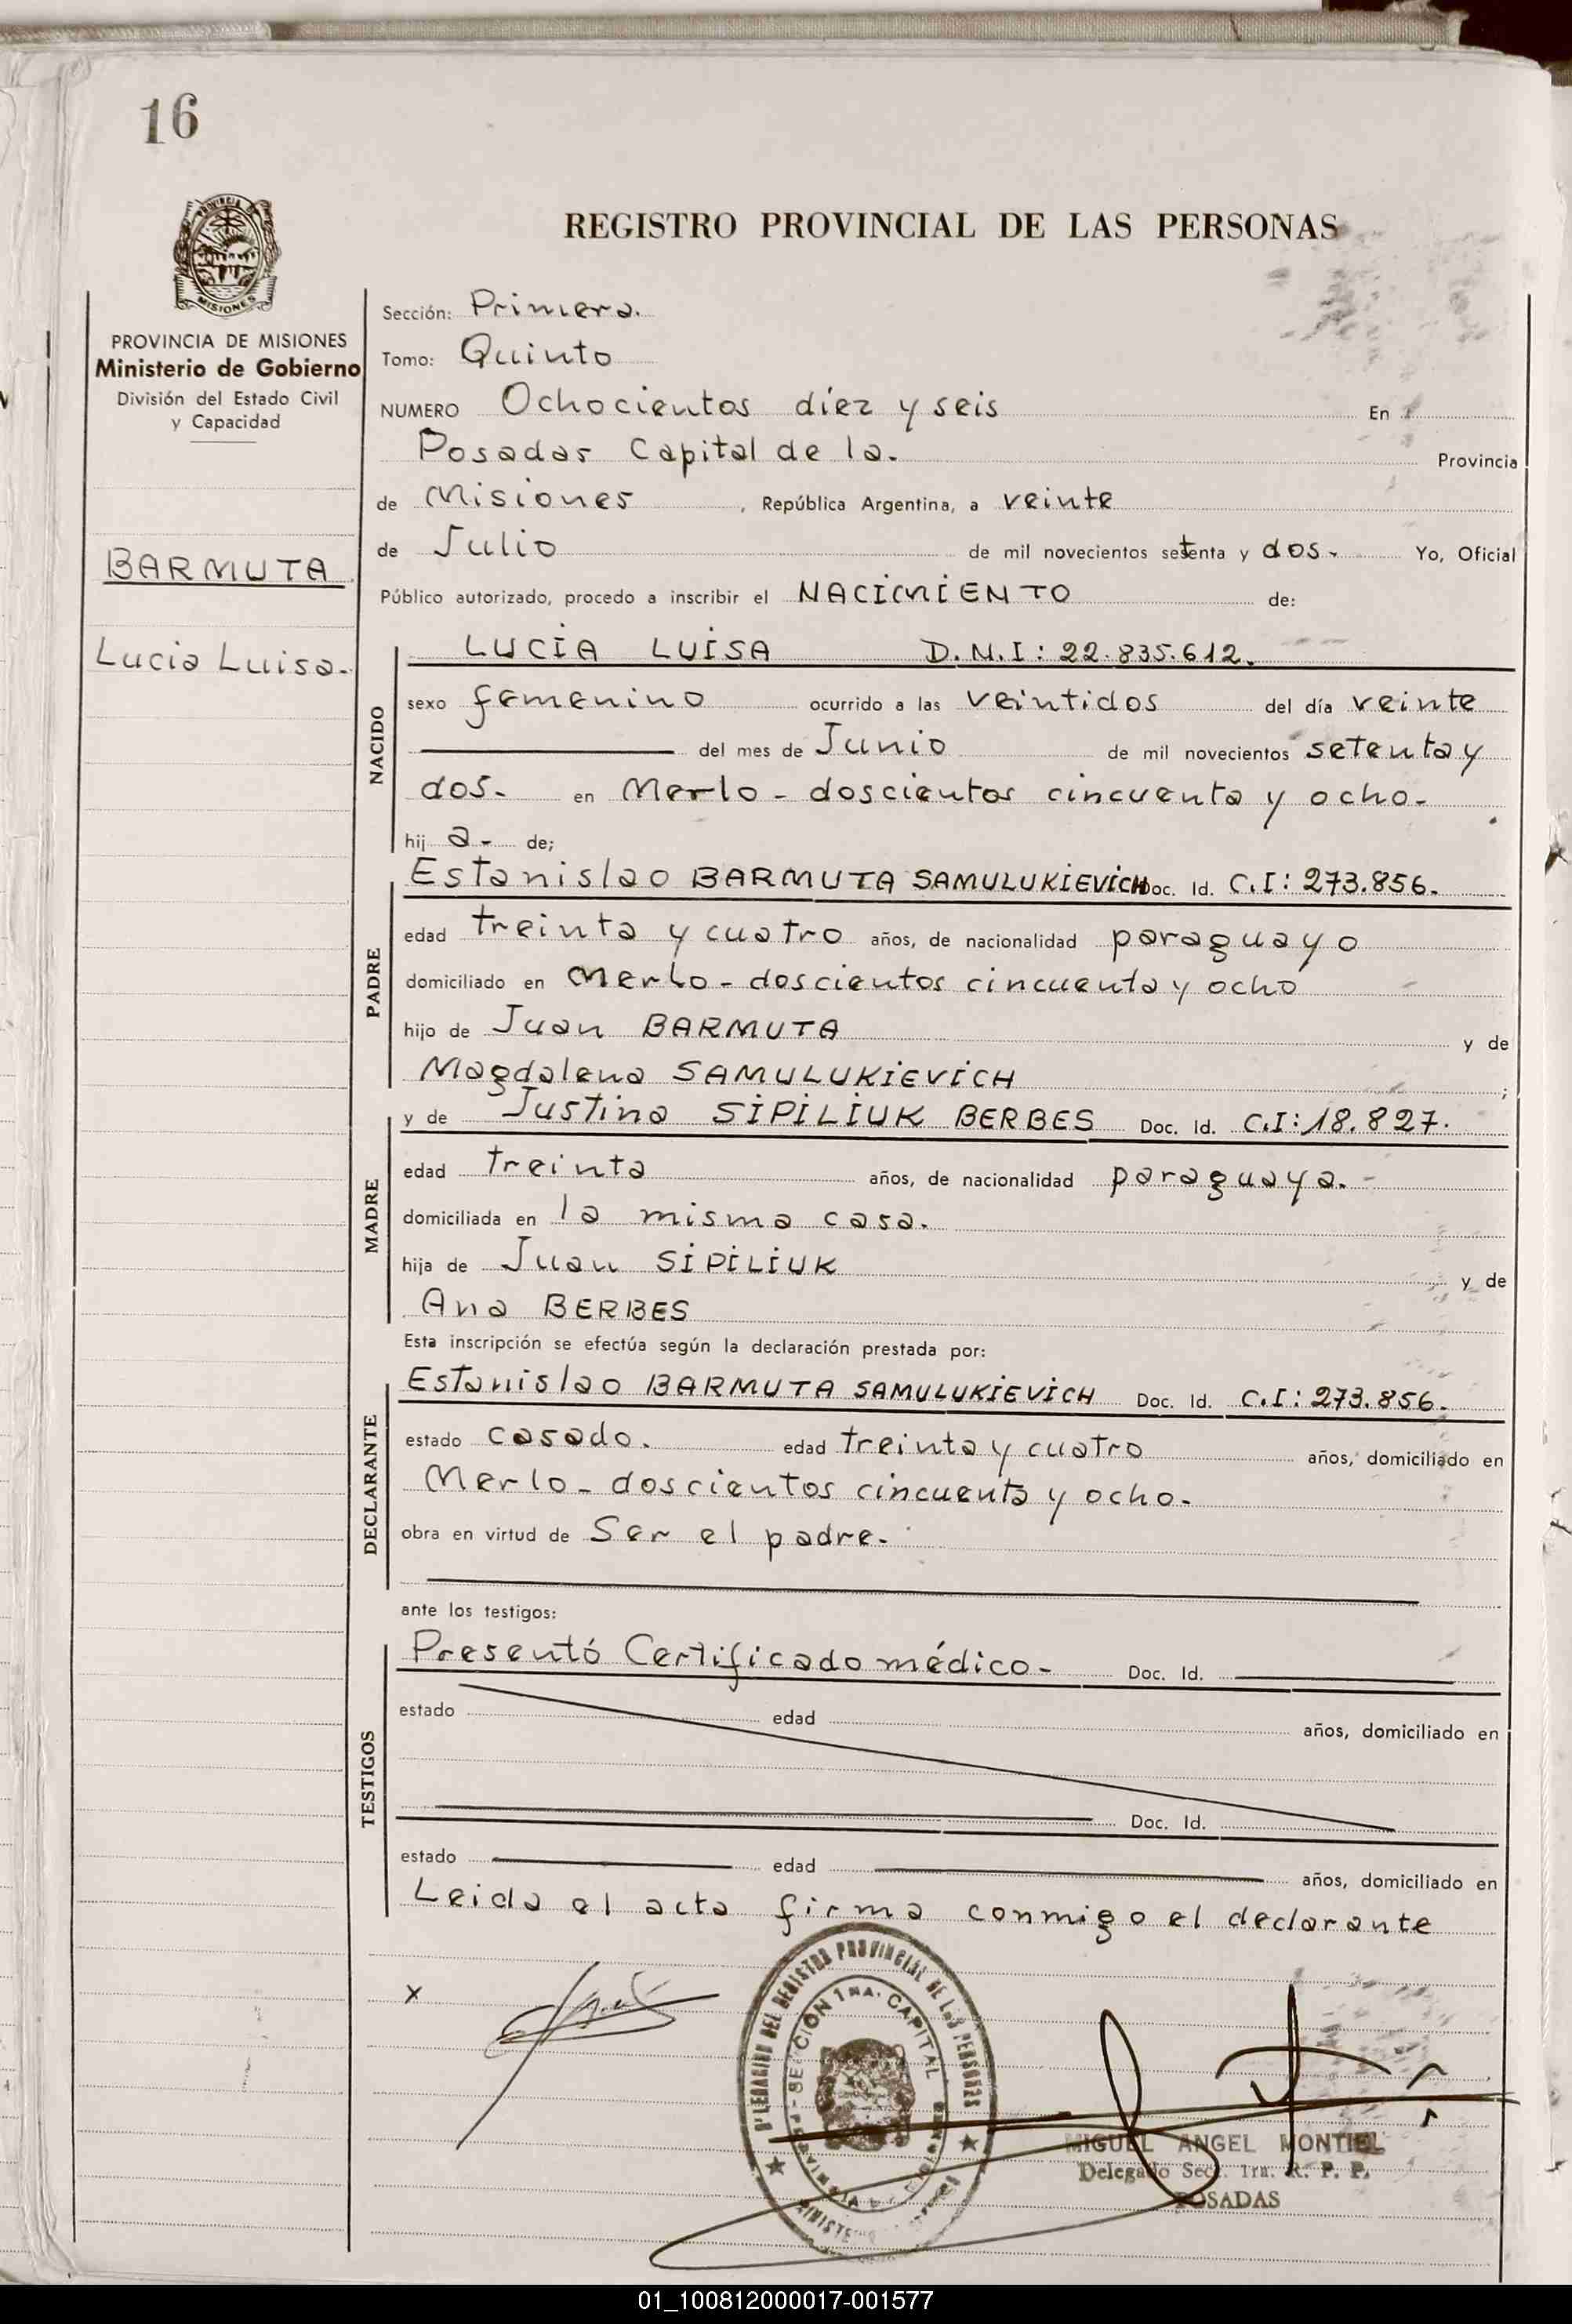 16
PROVINCIA DE
MISIONES
REGISTRO PROVINCIAL DE LAS PERSONAS
PROVINCIA DE MISIONES
Ministerio de Gobierno
División del Estado Civil
y Capacidad
BARMUTA
Lucia Luisa.
Sección: Primera.
Tomo: Quinto
NUMERO Ochocientos diez y seis En
Posadas Capital de la. Provincia
de Misiones, República Argentina, a veinte
de Julio de mil novecientos setenta y dos. Yo, Oficial
Público autorizado, procedo a inscribir el NACIMIENTO de:
NACIDO
LUCIA LUISA D.N.I: 22.835.612.
sexo femenino ocurrido a las veintidos del día veinte
del mes de Junio de mil novecientos setenta y
dos. en Merlo - doscientos cincuenta y ocho.
hij a. de;
PADRE
Estanislao BARMUTA SAMULUKIEVICH Doc. Id. C.I: 273.856.
edad treinta y cuatro años, de nacionalidad paraguayo
domiciliado en Merlo - doscientos cincuenta y ocho
hijo de Juan BARMUTA y de
Magdalena SAMULUKIEVICH ;
MADRE
y de Justina SIPILIUK BERBES Doc. Id. C.I: 18.827.
edad treinta años, de nacionalidad paraguaya. -
domiciliada en la misma casa.
hija de Juan SIPILIUK y de
Ana BERBES
Esta inscripción se efectúa según la declaración prestada por:
DECLARANTE
Estanislao BARMUTA SAMULUKIEVICH Doc. Id. C.I: 273.856.
estado casado. edad treinta y cuatro años, domiciliado en
Merlo - doscientos cincuenta y ocho.
obra en virtud de Ser el padre.
ante los testigos:
TESTIGOS
Presentó Certificado médico - Doc. Id.
estado edad años, domiciliado en
Doc. Id.
estado edad años, domiciliado en
Leida el acta firma conmigo el declarante
x
DELEGACION DEL REGISTRO PROVINCIAL DE LAS PERSONAS
SECCION 1RA. CAPITAL
MIGUEL ANGEL MONTIEL
Delegado Secc. 1ra. R. P. P.
POSADAS
01_100812000017-001577